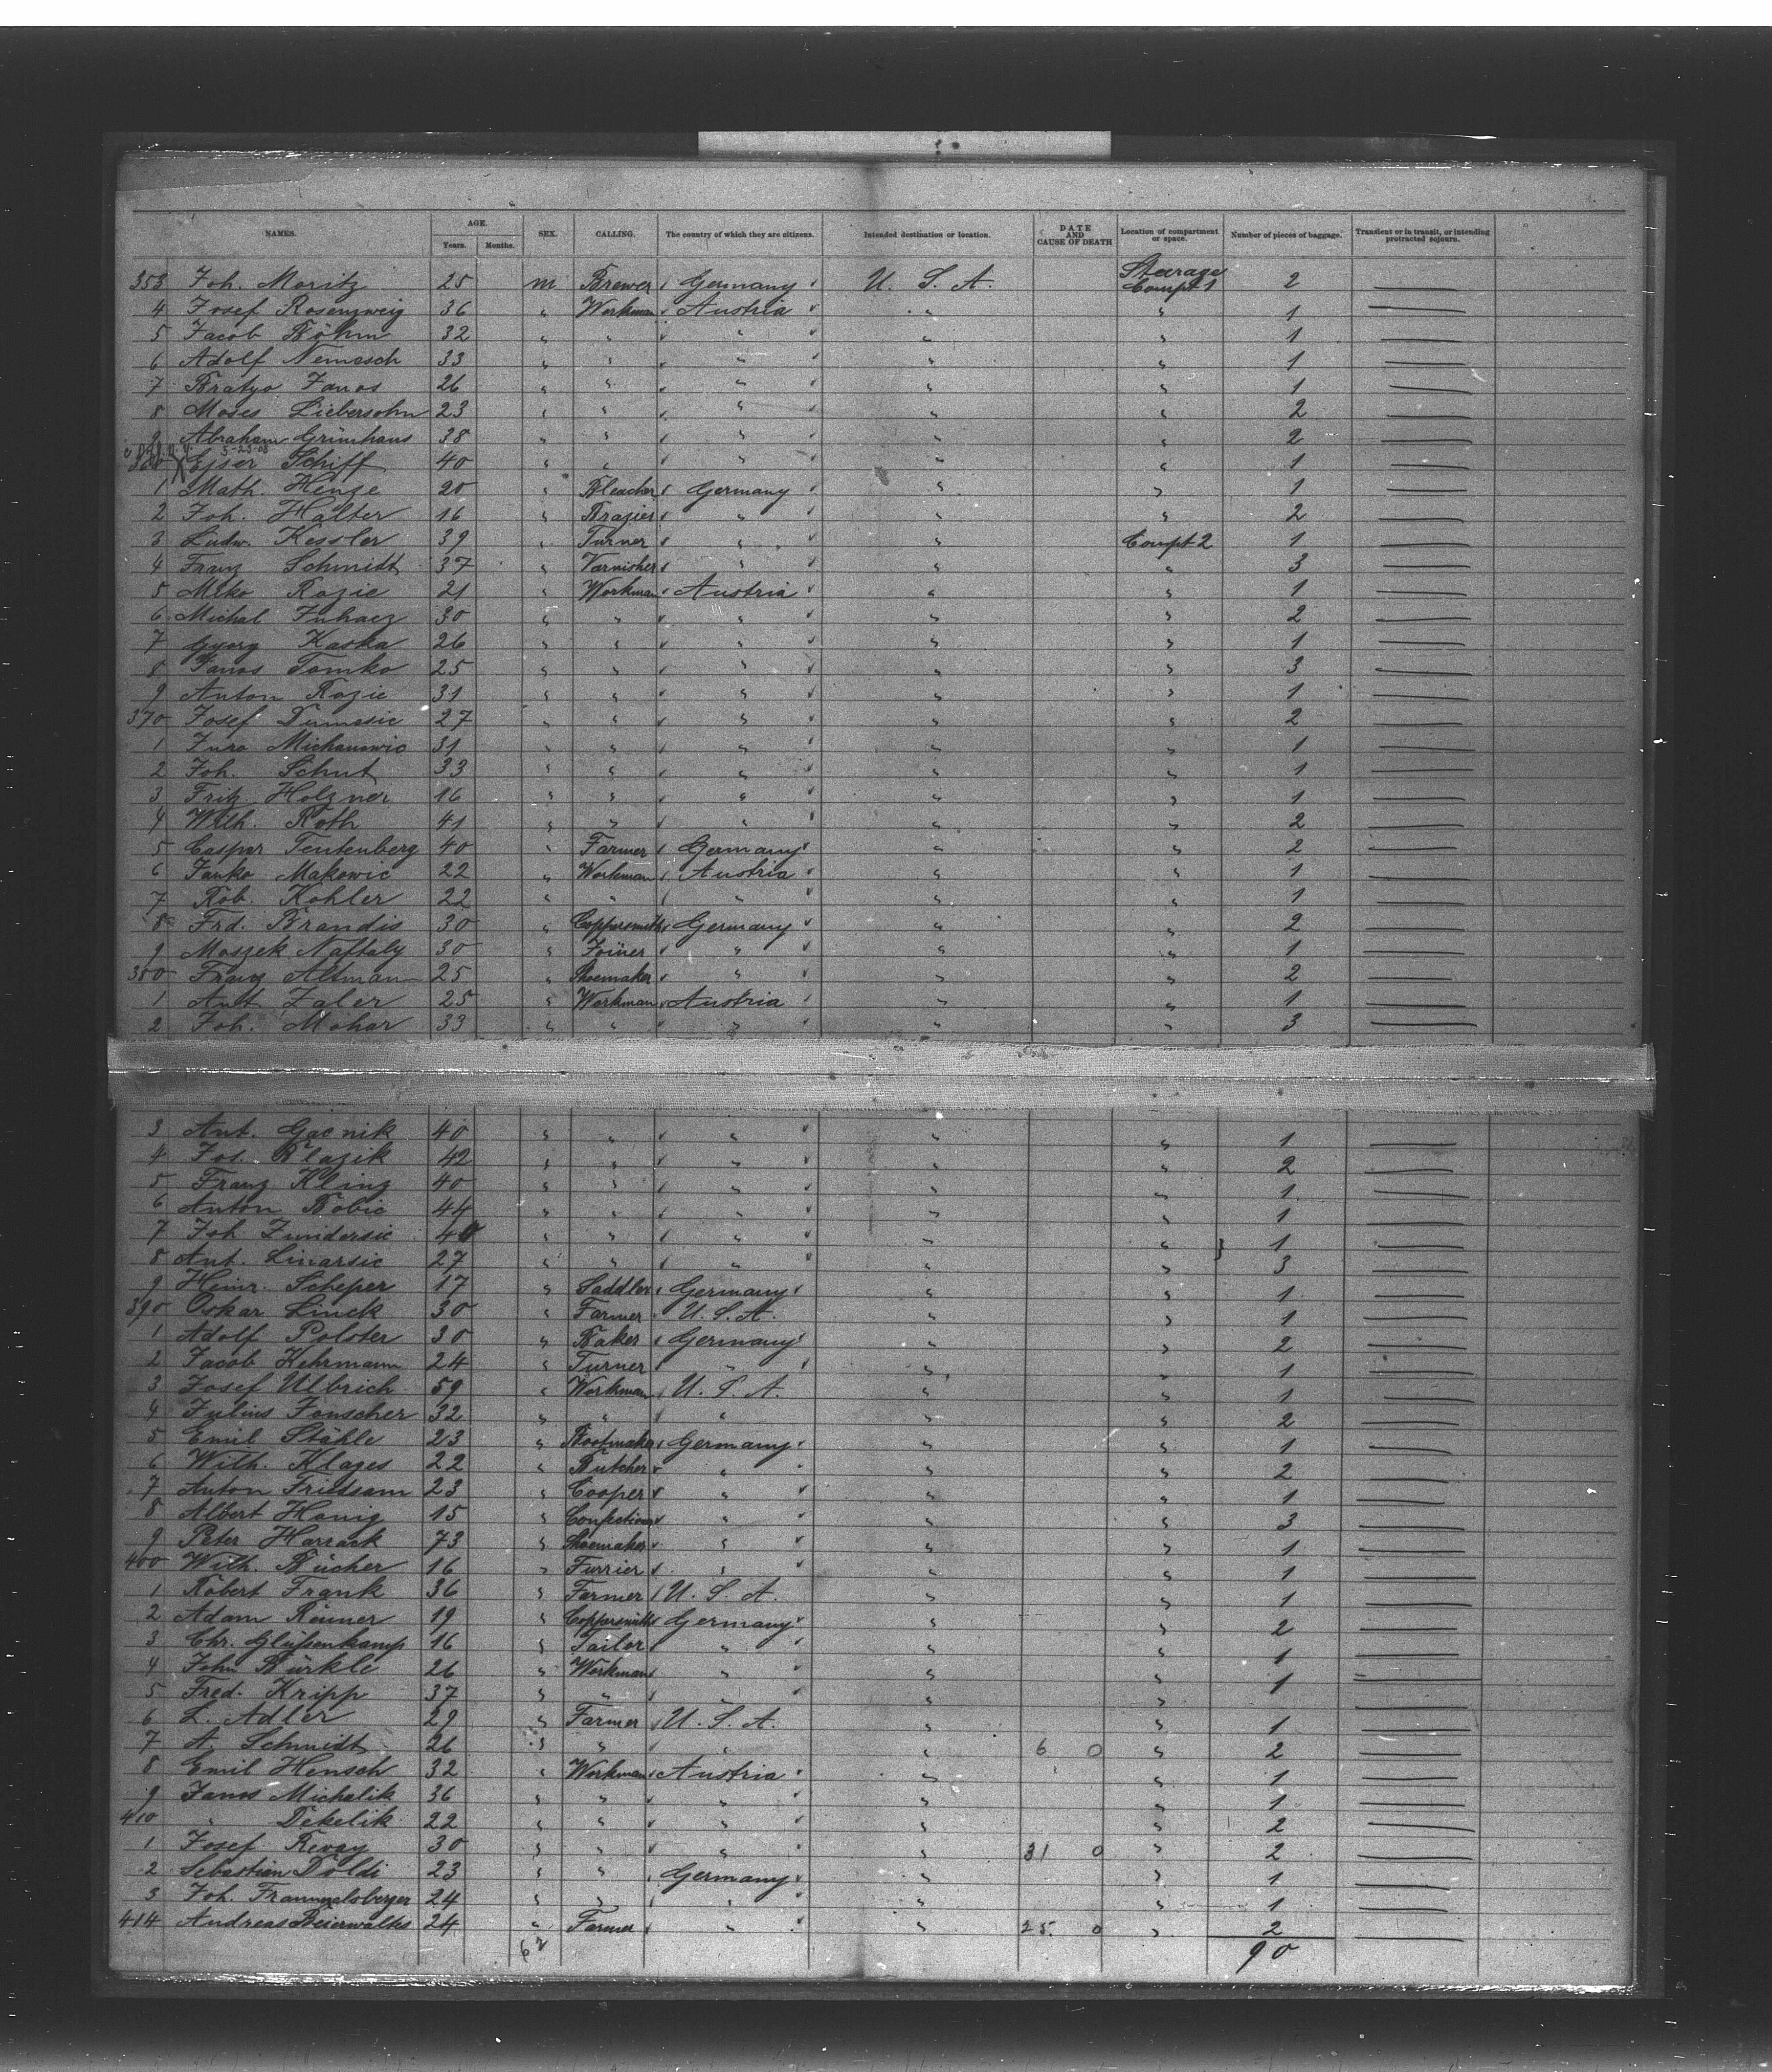 NAMES. AGE. Years. Months. SEX. CALLING. The country of which they are citizens. Intended destination or location. DATE AND CAUSE OF DEATH Location of compartment or space. Number of pieces of baggage. Transient or in transit, or intending protracted sojourn.
353 Joh. Moritz 25 m Brewer Germany U. S. A. Steerage Compt 1 2
4 Josef Rosenzweig 36 " Workman Austria " " 1
5 Jacob Böhm 32 " " " " " 1
6 Adolf Nemesch 33 " " " " " 1
7 Bratyo Janos 26 " " " " " 1
8 Moses Liebersohn 23 " " " " " 2
9 Abraham Grünhaus 38 " " " " " 2
5-23-08
360 Ejser Schiff 40 " " " " " 1
1 Math. Henze 20 " Bleacher Germany " " 1
2 Joh. Halter 16 " Brazier " " " 2
3 Ludw. Kessler 39 " Turner " " Compt 2 1
4 Franz Schmidt 37 " Varnisher " " " 3
5 Miko Rozic 21 " Workman Austria " " 1
6 Michal Juhacz 30 " " " " " 2
7 Gyorg Kaska 26 " " " " " 1
8 Janos Tomko 25 " " " " " 3
9 Anton Rozic 31 " " " " " 1
370 Josef Dumasic 27 " " " " " 2
1 Juro Michanowic 31 " " " " " 1
2 Joh. Schut 33 " " " " " 1
3 Fritz Holzner 16 " " " " " 1
4 Wilh. Roth 41 " " " " " 2
5 Caspar Teutenberg 40 " Farmer Germany " " 2
6 Janko Makowic 22 " Workman Austria " " 1
7 Rob. Kohler 22 " " " " " 1
8 Frd. Brandis 30 " Coppersmith Germany " " 2
9 Moszek Naftaly 30 " Joiner " " " 1
380 Franz Altmann 25 " Shoemaker " " " 2
1 Ant. Zaler 25 " Workman Austria " " 1
2 Joh. Mohar 33 " " " " " 3
3 Ant. Gacnik 40 " " " " " 1
4 Jos. Blazik 42 " " " " " 2
5 Franz Kling 40 " " " " " 1
6 Anton Bobic 44 " " " " " 1
7 Joh. Zunidersic 40 " " " " " 1
8 Ant. Linarsic 27 " " " " " 3
9 Heinr. Scheper 17 " Saddler Germany " " 1
390 Oskar Linck 30 " Farmer U. S. A. " " 1
1 Adolf Poloter 30 " Baker Germany " " 2
2 Jacob Kehrmann 24 " Turner " " " 1
3 Josef Ulbrich 59 " Workman U. S. A. " " 1
4 Julius Fonscher 32 " " " " " 2
5 Emil Stähle 23 " Bootmaker Germany " " 1
6 Wilh. Klages 22 " Butcher " " " 2
7 Anton Friedsam 23 " Cooper " " " 1
8 Albert Honig 15 " Confectioner " " " 3
9 Peter Harrack 73 " Shoemaker " " " 1
400 Wilh. Bücher 16 " Furrier " " " 1
1 Robert Frank 36 " Farmer U. S. A. " " 1
2 Adam Renner 19 " Coppersmith Germany " " 2
3 Chr. Glüsenkamp 16 " Tailor " " " 1
4 John Bürkle 26 " Workman " " " 1
5 Fred. Kripp 37 " " " " "
6 L. Adler 29 " Farmer U. S. A. " " 1
7 A. Schmidt 26 " " " " 6 0 " 2
8 Emil Hensch 32 " Workman Austria " " 1
9 Janos Michalik 36 " " " " " 1
410 " Dekelik 22 " " " " " 2
1 Josef Revay 30 " " " " 31 0 " 2
2 Sebastian Döldi 23 " " Germany " " 1
3 Joh. Frammelsberger 24 " " " " " 1
414 Andreas Beierwaltes 24 " Farmer " " 25. 0 " 2
62 90